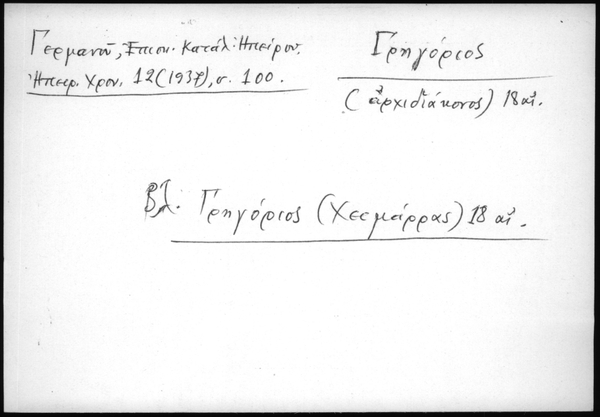 Γερμανοῦ, Ἐπισκ. Κατάλ. Ἠπείρου.
Ἠπειρ. Χρον. 12 (1937), σ. 100.
Γρηγόριος
(ἀρχιδιάκονος) 18 αἰ.
Βλ. Γρηγόριος (Χειμάρρας) 18 αἰ.